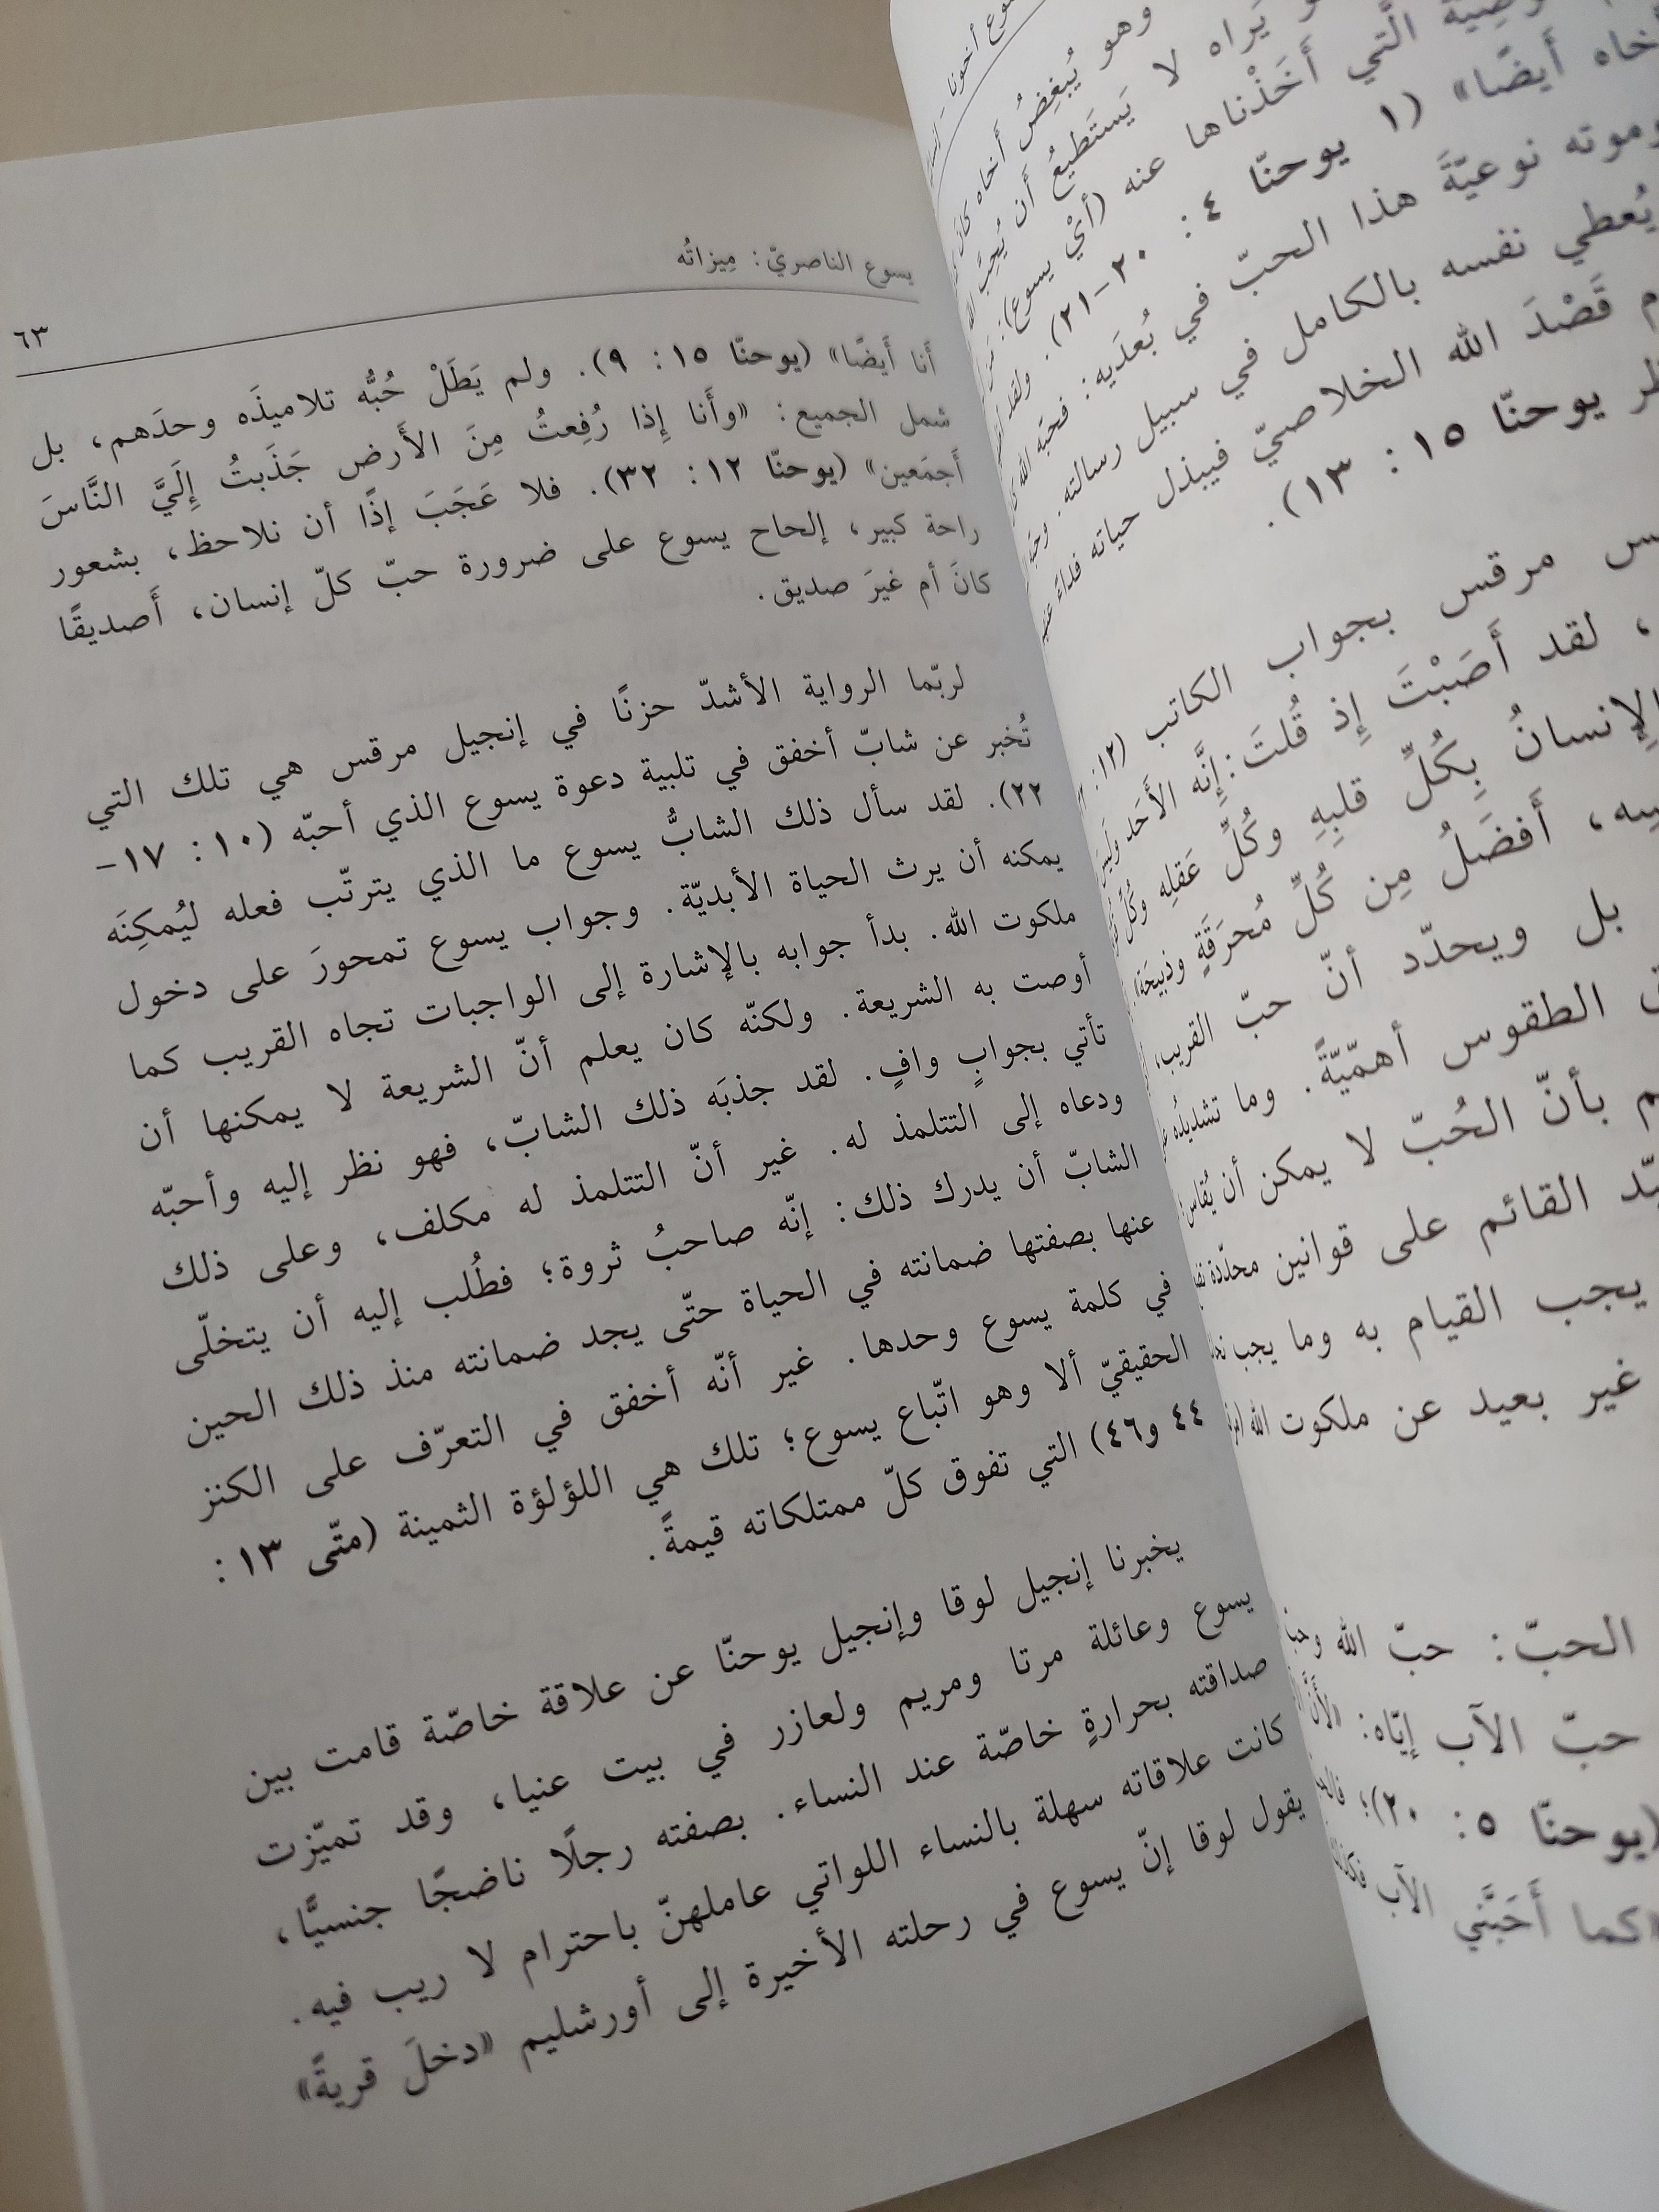 وع أخونا -
وهو يُبغِضُ أخاه
يَراه لا يَستَطيعُ أَن يُحِبَّ الله
وصِيَّةُ الَّتي أَخَذْناها عنه (أيْ يسوع):
أخاه أَيضًا» (١ يوحنّا ٤: ٢٠-٢١). ولقد
وموته نوعيّةَ هذا الحبّ في بُعدَيه: فحبّه الله
يُعطي نفسه بالكامل في سبيل رسالته.
قَصْدَ الله الخلاصيّ فيبذل حياته فداءً
يوحنّا ١٥: ١٣).
مرقس بجواب الكاتب (١٢:
، لقد أَصَبْتَ إِذ قُلتَ: إِنَّه الأَحَد
الإِنسانُ بِكُلِّ قلبِهِ وكُلِّ عَقلِه وكُلِّ
، أَفضَلُ مِن كُلِّ مُحرَقَةٍ وذبيحَة»
بل ويحدّد أنّ حبّ القريب،
الطقوس أهمّيّةً. وما تشديدُه
بأنّ الحُبّ لا يمكن أن يُقاس
القائم على قوانين محدّدة
يجب القيام به وما يجب
غير بعيد عن ملكوت الله
الحبّ: حبّ الله
حبّ الآب إيّاه: «لأَنَّ
(يوحنّا ٥: ٢٠)؛
«كما أَحَبَّني الآب
يسوع الناصريّ: مِيزاتُه
٦٣
أَنا أَيضًا» (يوحنّا ١٥: ٩). ولم يَطَلْ حُبُّه تلاميذَه وحدَهم، بل
شمل الجميع: «وأَنا إِذا رُفِعتُ مِنَ الأَرض جَذَبتُ إِلَيَّ النَّاسَ
أَجمَعين» (يوحنّا ١٢: ٣٢). فلا عَجَبَ إذًا أن نلاحظ، بشعور
راحة كبير، إلحاح يسوع على ضرورة حبّ كلّ إنسان، أَصديقًا
كانَ أم غيرَ صديق.
لربّما الرواية الأشدّ حزنًا في إنجيل مرقس هي تلك التي
تُخبر عن شابّ أخفق في تلبية دعوة يسوع الذي أحبّه (١٠: ١٧-
٢٢). لقد سأل ذلك الشابُّ يسوع ما الذي يترتّب فعله ليُمكِنَه
يمكنه أن يرث الحياة الأبديّة. وجواب يسوع تمحورَ على دخول
ملكوت الله. بدأ جوابه بالإشارة إلى الواجبات تجاه القريب كما
أوصت به الشريعة. ولكنّه كان يعلم أنّ الشريعة لا يمكنها أن
تأتي بجوابٍ وافٍ. لقد جذبَه ذلك الشابّ، فهو نظر إليه وأحبّه
ودعاه إلى التتلمذ له. غير أنّ التتلمذ له مكلف، وعلى ذلك
الشابّ أن يدرك ذلك: إنّه صاحبُ ثروة؛ فطُلب إليه أن يتخلّى
عنها بصفتها ضمانته في الحياة حتّى يجد ضمانته منذ ذلك الحين
في كلمة يسوع وحدها. غير أنّه أخفق في التعرّف على الكنز
الحقيقيّ ألا وهو اتّباع يسوع؛ تلك هي اللؤلؤة الثمينة (متّى ١٣:
٤٤ و٤٦) التي تفوق كلّ ممتلكاته قيمةً.
يخبرنا إنجيل لوقا وإنجيل يوحنّا عن علاقة خاصّة قامت بين
يسوع وعائلة مرتا ومريم ولعازر في بيت عنيا، وقد تميّزت
صداقته بحرارةٍ خاصّة عند النساء. بصفته رجلًا ناضجًا جنسيًّا،
كانت علاقاته سهلة بالنساء اللواتي عاملهنّ باحترام لا ريب فيه.
يقول لوقا إنّ يسوع في رحلته الأخيرة إلى أورشليم «دخلَ قريةً»